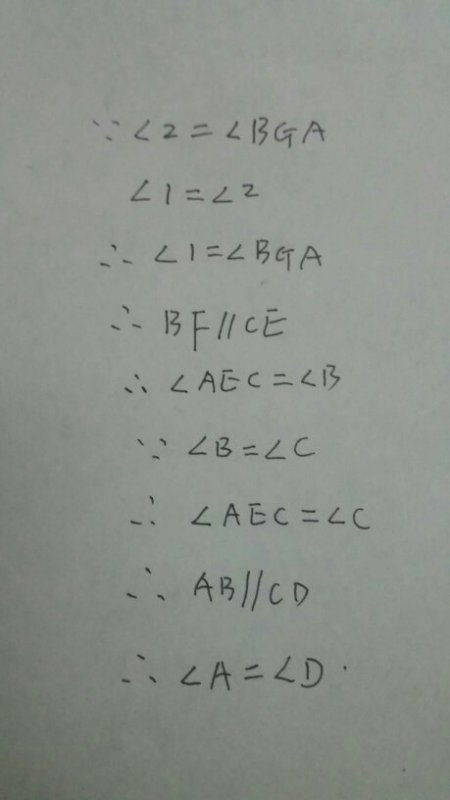 ∵ ∠2=∠BGA
∠1=∠2
∴ ∠1=∠BGA
∴ BF//CE
∴ ∠AEC=∠B
∵ ∠B=∠C
∴ ∠AEC=∠C
∴ AB//CD
∴ ∠A=∠D.